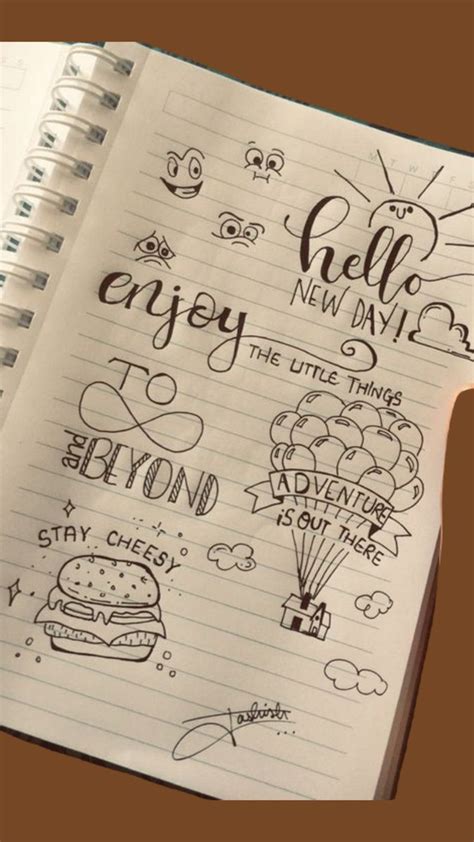 hello
NEW DAY!
enjoy
THE LITTLE THINGS
TO
and BEYOND
ADVENTURE
iS OUT THERE
STAY CHEESY